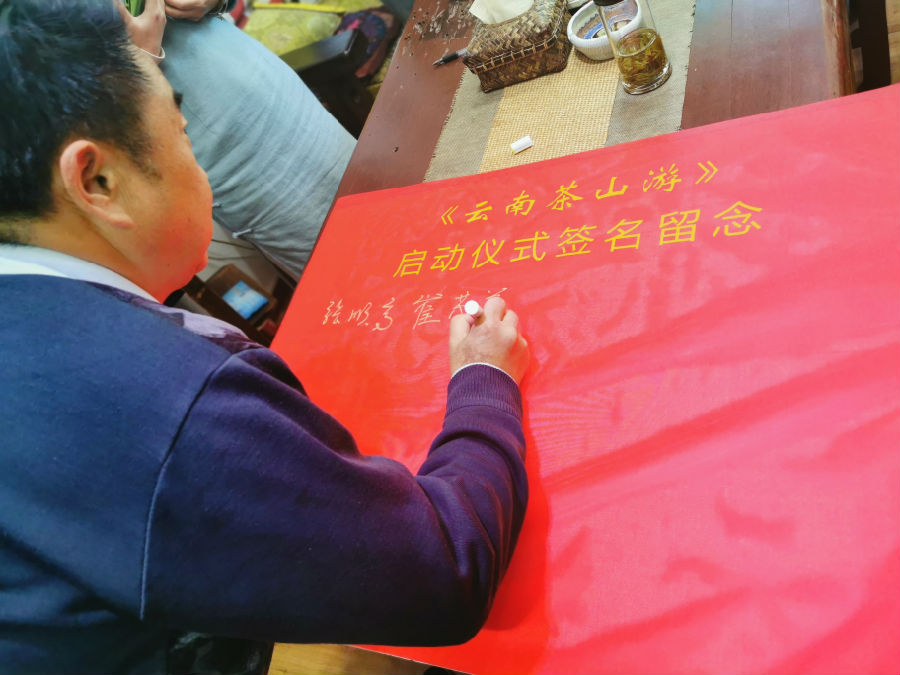 《云南茶山游》
启动仪式签名留念
张顺高 崔